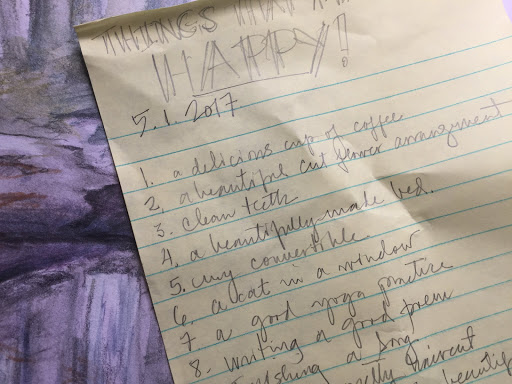 THINGS THAT
HAPPY!
5.1.2017
1. a delicious cup of coffee
2. a beautiful cut flower arrangement
3. clean teeth
4. a beautifully made bed.
5. my convertible
6. a cat in a window
7 a good yoga practice
8. writing a good poem
a song
haircut